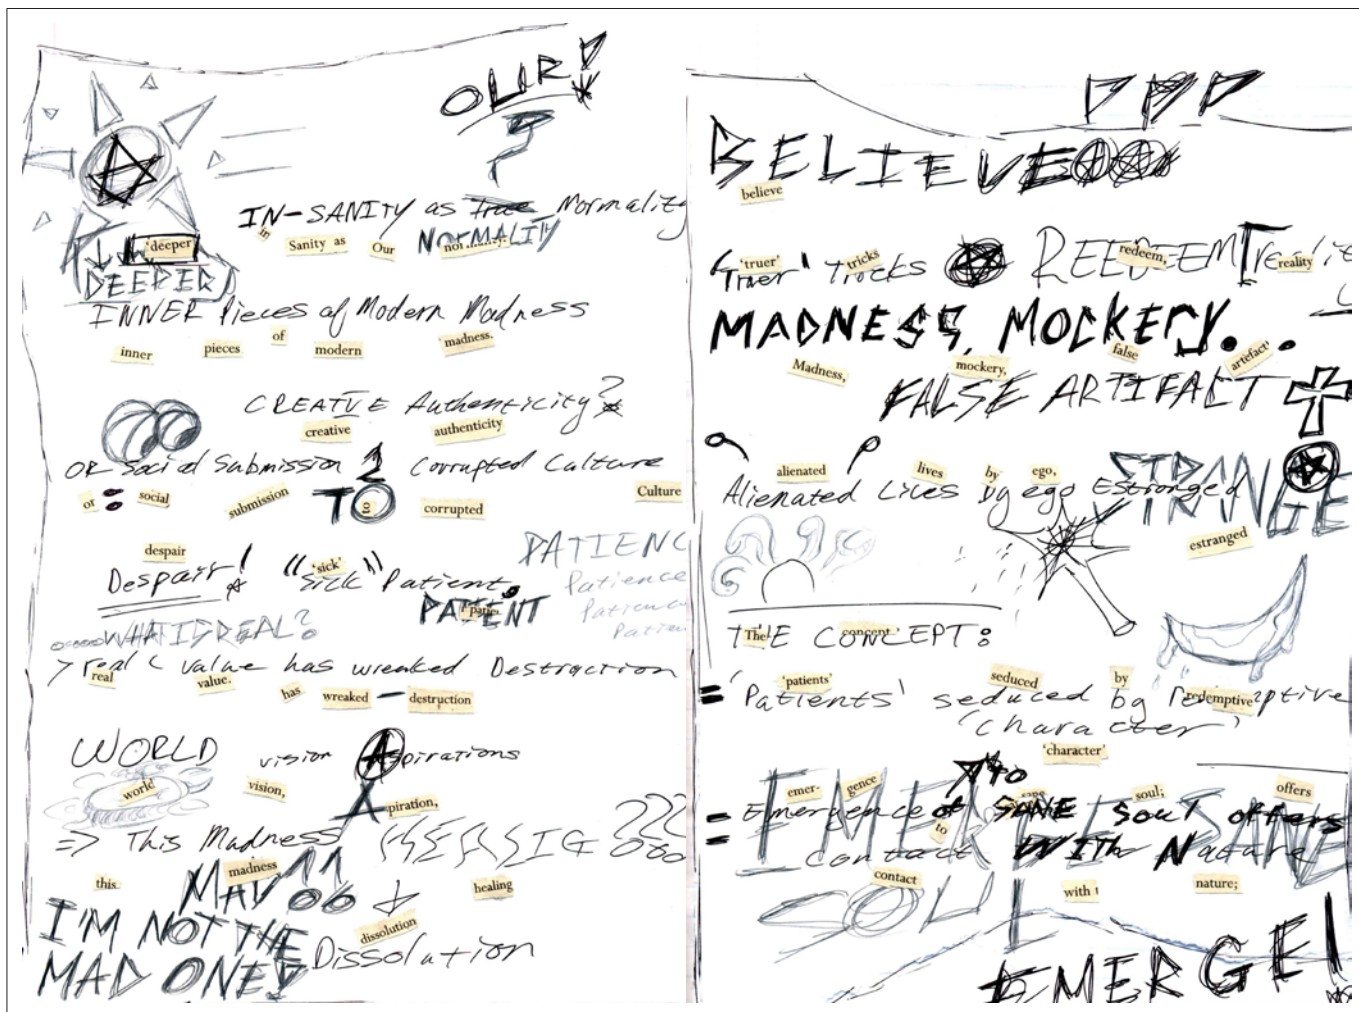 OUR!
IN-SANITY as True Normality
in Sanity as Our NORMALITY
'deeper
DEEPER
INNER Pieces of Modern Madness
inner pieces of modern madness.
CREATIVE Authenticity?
creative authenticity
OR Social Submission 2 Corrupted Culture
or social submission TO corrupted Culture
despair 'sick'
Despair! "Sick" Patient.
PATIENC
Patience
Patienc
Patien
PATIENT
WHAT IS REAL?
> real < value has wreaked Destruction
real value. has wreaked – destruction
WORLD vision Aspirations
world vision, Aspiration,
=> This Madness
this madness healing
MAD
I'M NOT THE
MAD ONE!
dissolution
Dissolution
BELIEVE
believe
'truer' tricks redeem, reality
'Truer' tricks REEDEEM realit
MADNESS, MOCKERY...
Madness, mockery, false artefact'
FALSE ARTIFACT
alienated lives by ego,
Alienated Lives by ego Estranged
STRANGE
estranged
THE CONCEPT:
The concept
'patients' seduced by redemptive
= 'Patients' seduced by redemptive
'character'
'character'
emer- gence to soul; offers
= Emergence to SANE Soul offers
EMERGE SANE
= contact With Nature
contact with nature;
SOUL
EMERGE!